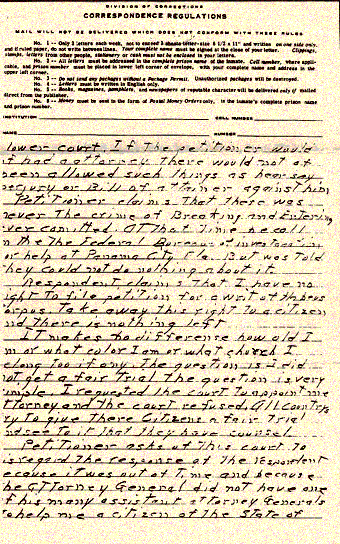 DIVISION OF CORRECTIONS
CORRESPONDENCE REGULATIONS
MAIL WILL NOT BE DELIVERED WHICH DOES NOT CONFORM WITH THESE RULES
No. 1 -- Only 2 letters each week, not to exceed 2 sheets letter-size 8 1/2 x 11" and written on one side only,
and if ruled paper, do not write between lines. Your complete name must be signed at the close of your letter. Clippings,
stamps, letters from other people, stationery or cash must not be enclosed in your letters.
No. 2 -- All letters must be addressed in the complete prison name of the inmate. Cell number, where appli-
cable, and prison number must be placed in lower left corner of envelope, with your complete name and address in the
upper left corner.
No. 3 -- Do not send any packages without a Package Permit. Unauthorized packages will be destroyed.
No. 4 -- Letters must be written in English only.
No. 5 -- Books, magazines, pamphlets, and newspapers of reputable character will be delivered only if mailed
direct from the publisher.
No. 6 -- Money must be sent in the form of Postal Money Orders only, in the inmate's complete prison name
and prison number.
INSTITUTION CELL NUMBER
NAME NUMBER
lower court. If the petitioner would
if had a attorney there would not of
been allowed such things as hear say
perjury or Bill of attainer against him.
Petitioner claims that there was
never the crime of Breaking and Entering
ver comitted. At that time he call
n the the Federal Bureau of investigation
or help at Panama City Fla. But was told
hey could not do nothing about it.
Respondent claims that I have no
ight to file petition for a writ of Habeus
orpus. Take away this right to a citizen
nd there is nothing left
It makes no difference how old I
m or what color I am or what church I
elong too if any. The question is I did
not get a fair trial. The question is very
imple. I requested the court to appoint me
ttorney and the court refused. All Countrys
ry to give there Citizens a fair Trial
nd see to it that they have counsel
Petitioner asks of this court to
isregard the response of the Respondent
ecause it was out of Time and because
he Attorney General did not have one
f his many assistent attorney Generals
o help me a citizen of the State of